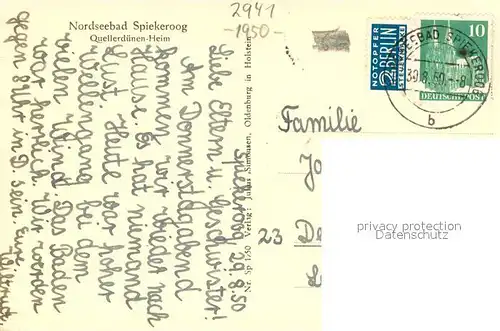 Nordseebad Spiekeroog
Quellerdünen-Heim
2941
-1950-
Spiekeroog 29.8.50
Liebe Eltern u. Geschwister!
Am Donnerstagabend
kommen wir wieder nach
Hause. Es hat niemand
Lust. Heute war hoher
Wellengang bei dem
vielen Wind. Das Baden
war herrlich. Wir werden
gegen 8 Uhr in D. sein. Eure
Nr. Sp 1/50 Verlag: Julius Simonsen, Oldenburg in Holstein
NOTOPFER
2 BERLIN
STEUERMARKE
10
DEUTSCHE POST
NORDSEEBAD SPIEKEROOG
30.8.50
b
Familie
Jo
23 De
privacy protection
Datenschutz